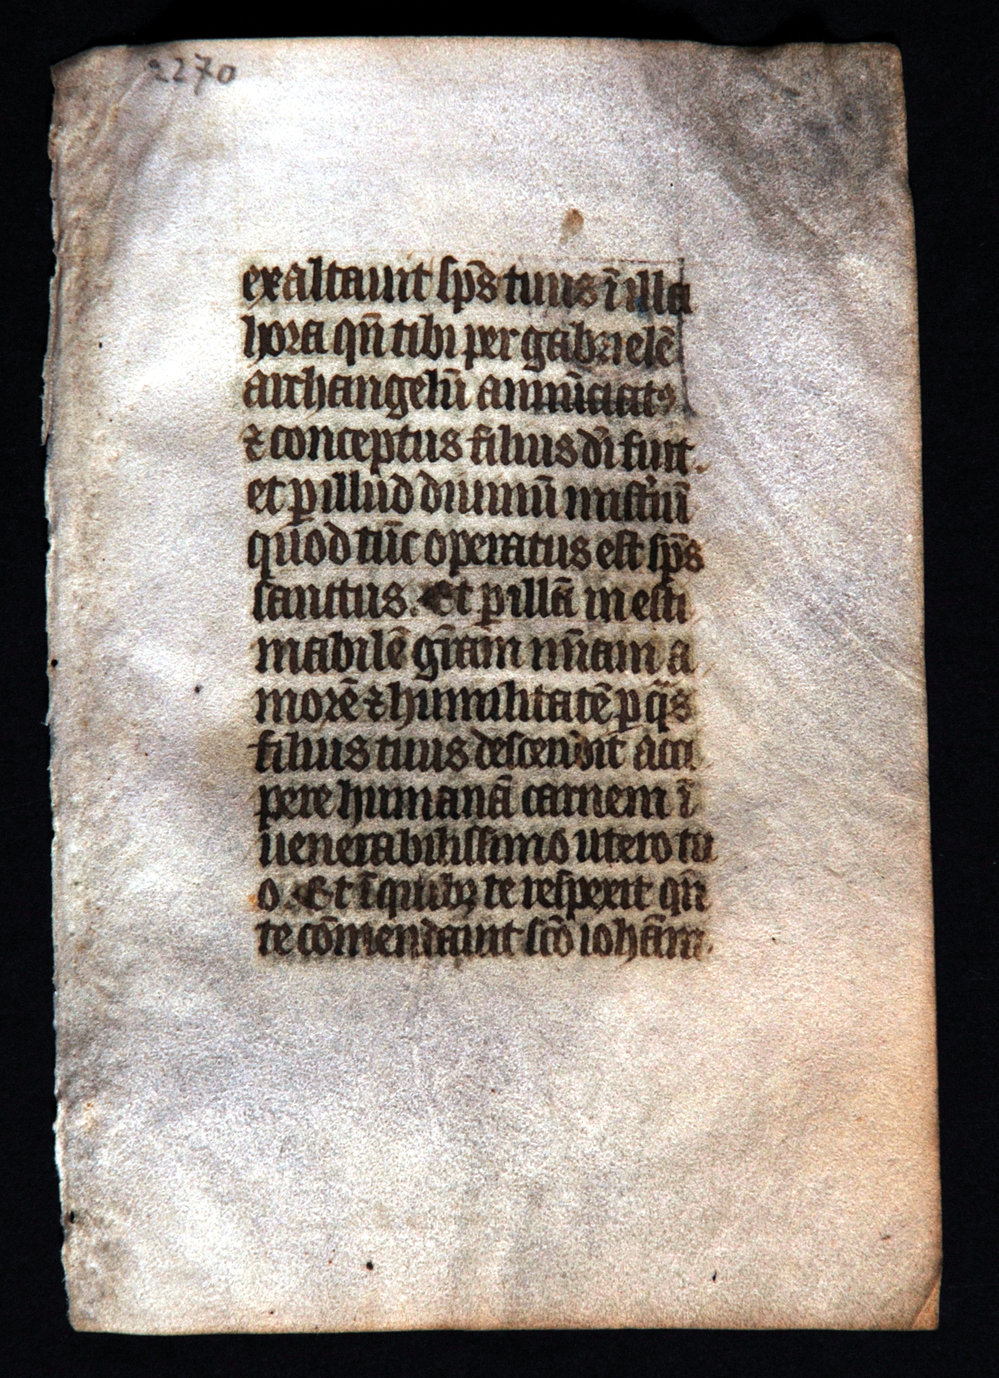 2270
exaltauit sp̄s tuus ī illa
hora qn̄ tibi per gabrielē
archangelū annūciat᷒
⁊ conceptus filius dī fuit.
et p̲ illud diuinū mist'iū
quod tūc operatus est sp̄s
sanctus. Et p̲ illā in esti
mabilē gr̄am n̄nam a
morē ⁊ humilitatē p̲ q̄s
filius tuus descendit acci
pere humanā carnem ī
uenerabilissimo utero tu
o. Et ī quibꝫ te respexit qn̄
te cōmendauit sc̄o iohān̄i.